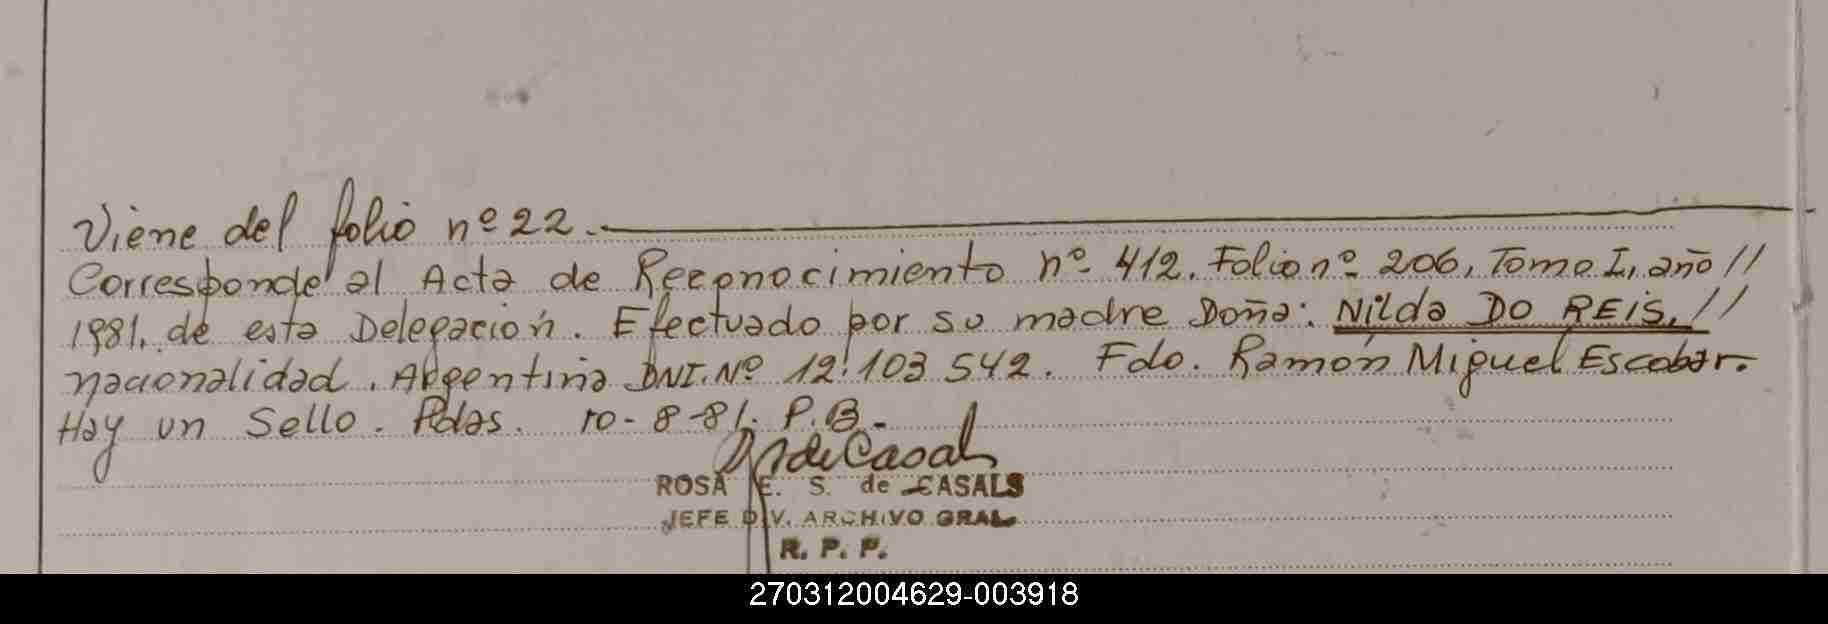 Viene del folio nº 22.-
Corresponde al Acta de Reconocimiento nº 412. Folio nº 206, Tomo I, año //
1981, de esta Delegación. Efectuado por su madre Doña: Nilda DO REIS, //
nacionalidad. Argentina DNI. Nº 12.103.542. Fdo. Ramón Miguel Escobar.
Hay un Sello. Pdas. 10-8-81. P.B.-
ROSA E. S. de CASALS
JEFE DIV. ARCHIVO GRAL.
R. P. P.
270312004629-003918